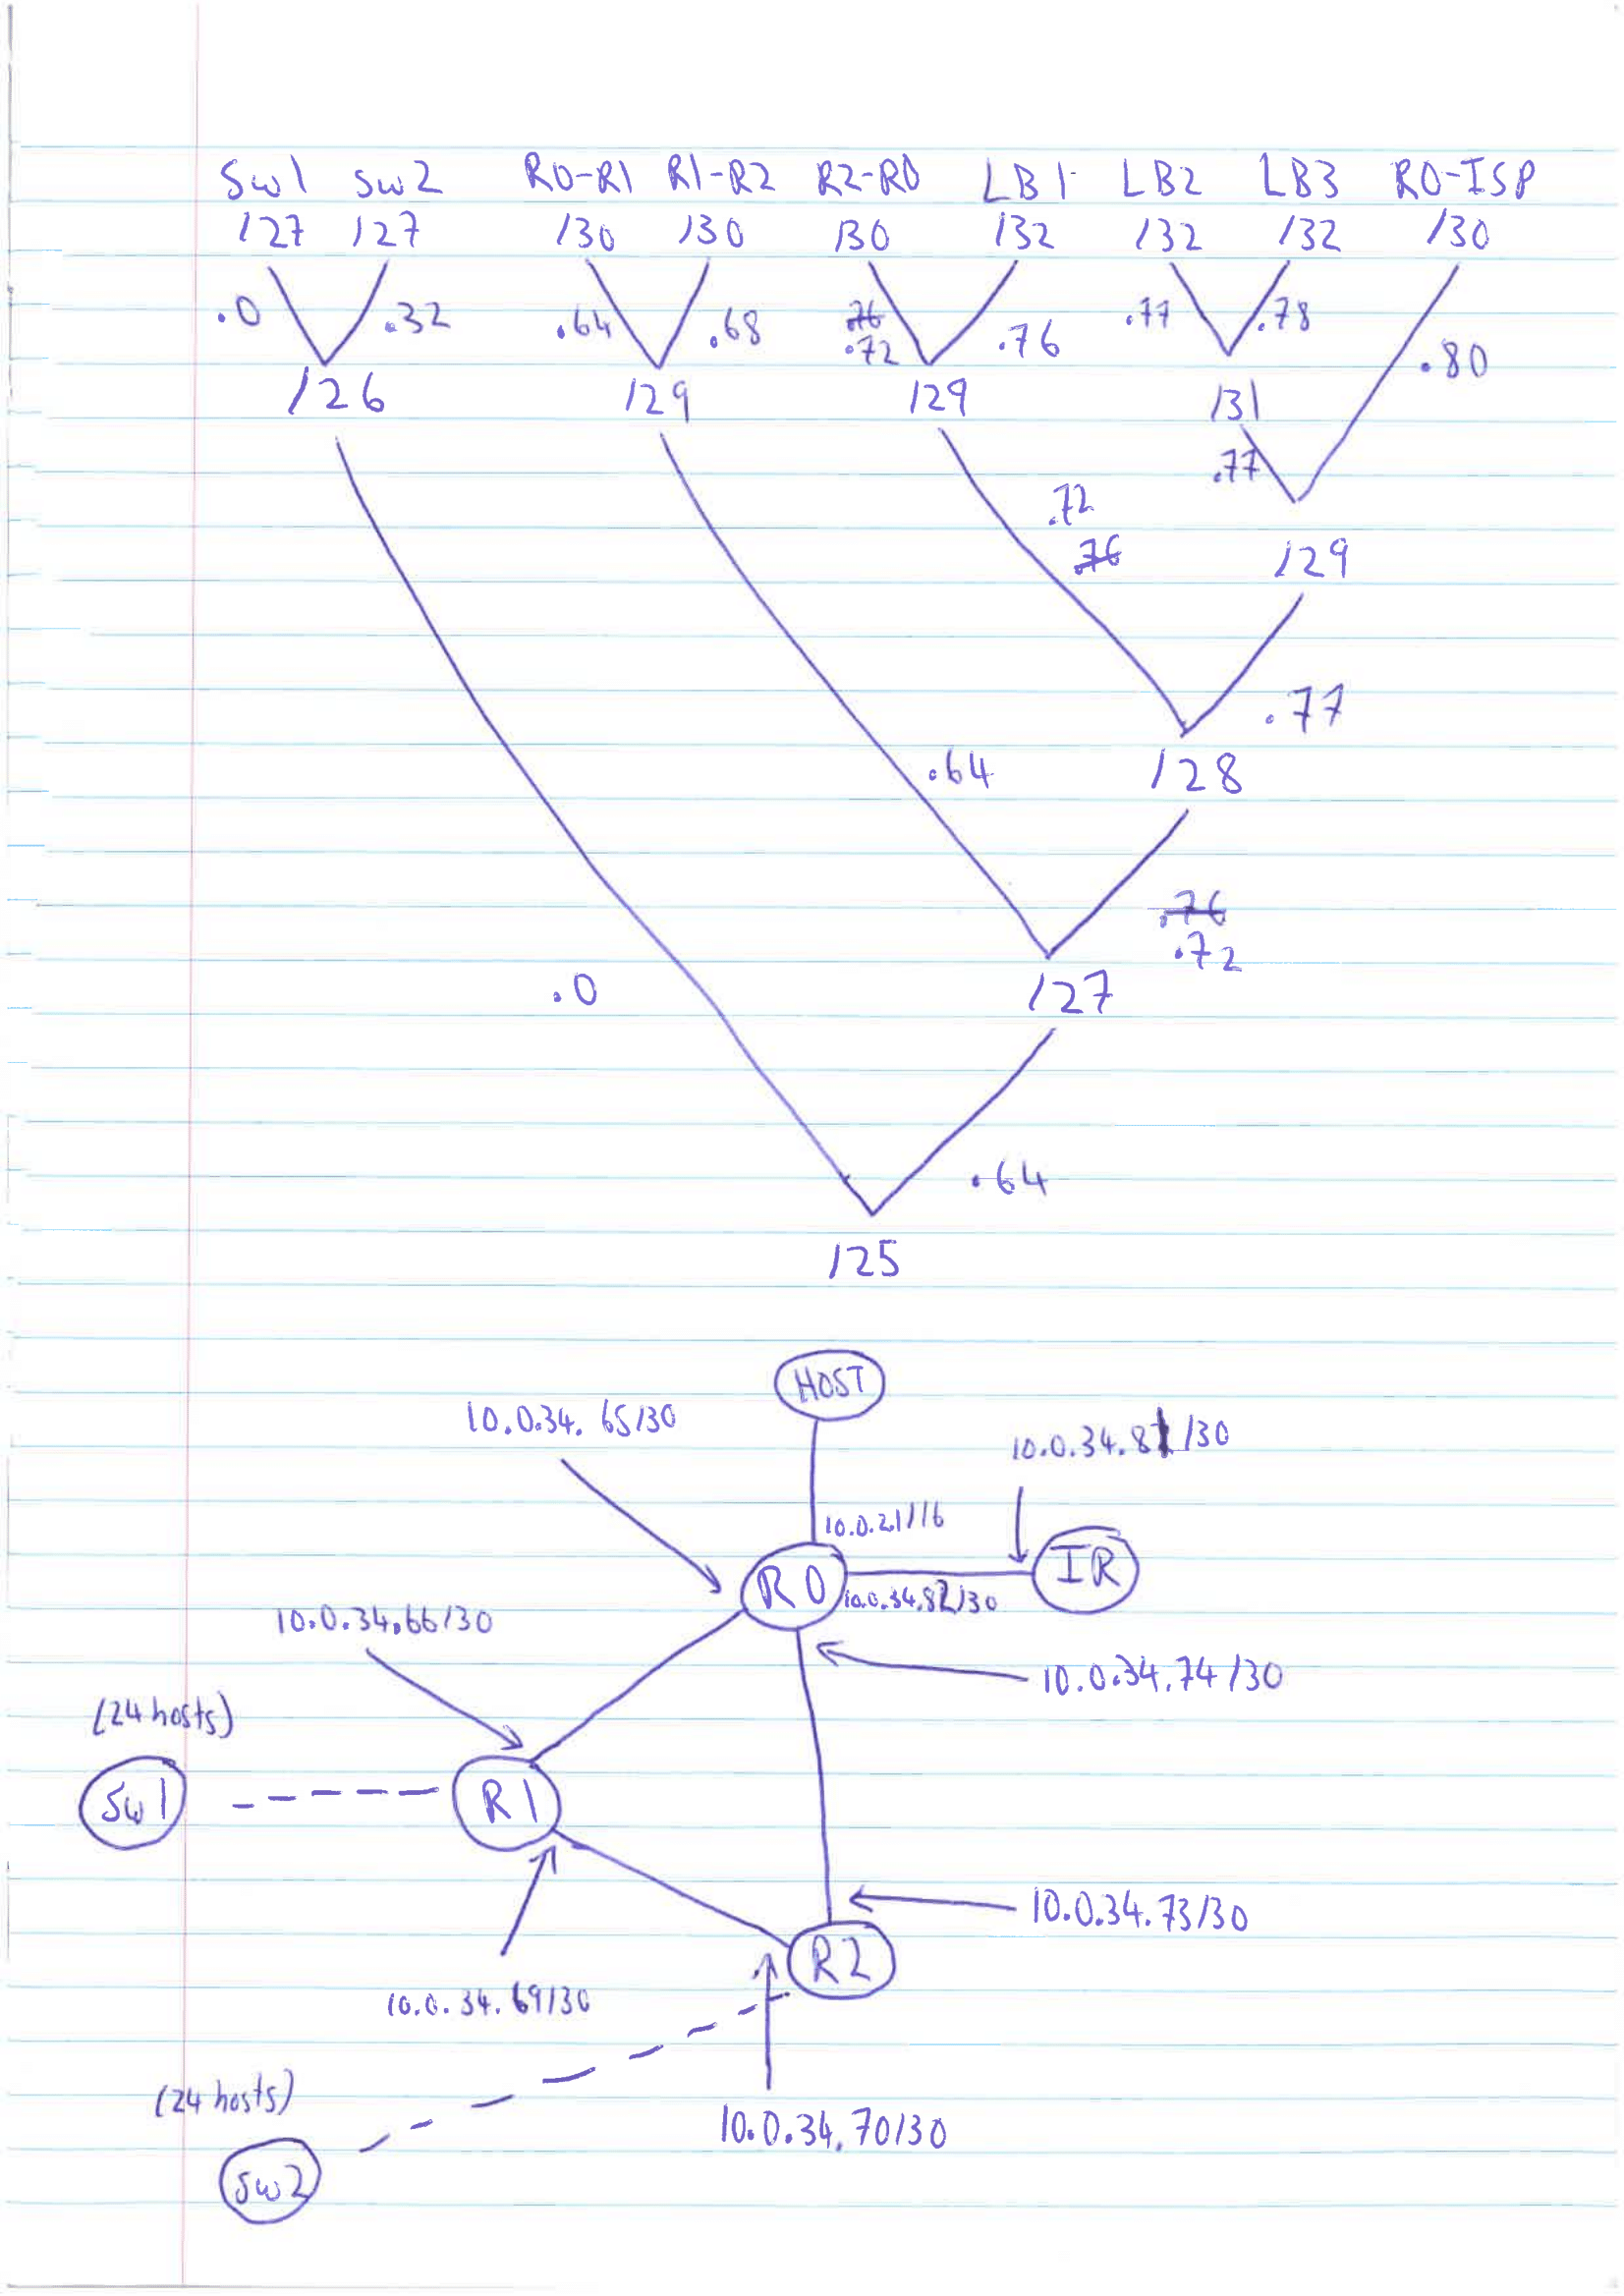 Sw1 Sw2 R0-R1 R1-R2 R2-R0 LB1 LB2 LB3 R0-ISP
/27 /27 /30 /30 /30 /32 /32 /32 /30
.0 .32 .64 .68 .76 .72 .76 .77 .78 .80
/26 /29 /29 /31
.77
.72
.76
/29
.77
.64 /28
.76
.72
.0 /27
.64
/25
HOST
10.0.34.65/30
10.0.34.81/30
10.0.2.1/16
IR
R0
10.0.34.82/30
10.0.34.66/30
10.0.34.74/30
(24 hosts)
Sw1
R1
10.0.34.73/30
R2
10.0.34.69/30
(24 hosts)
10.0.34.70/30
Sw2